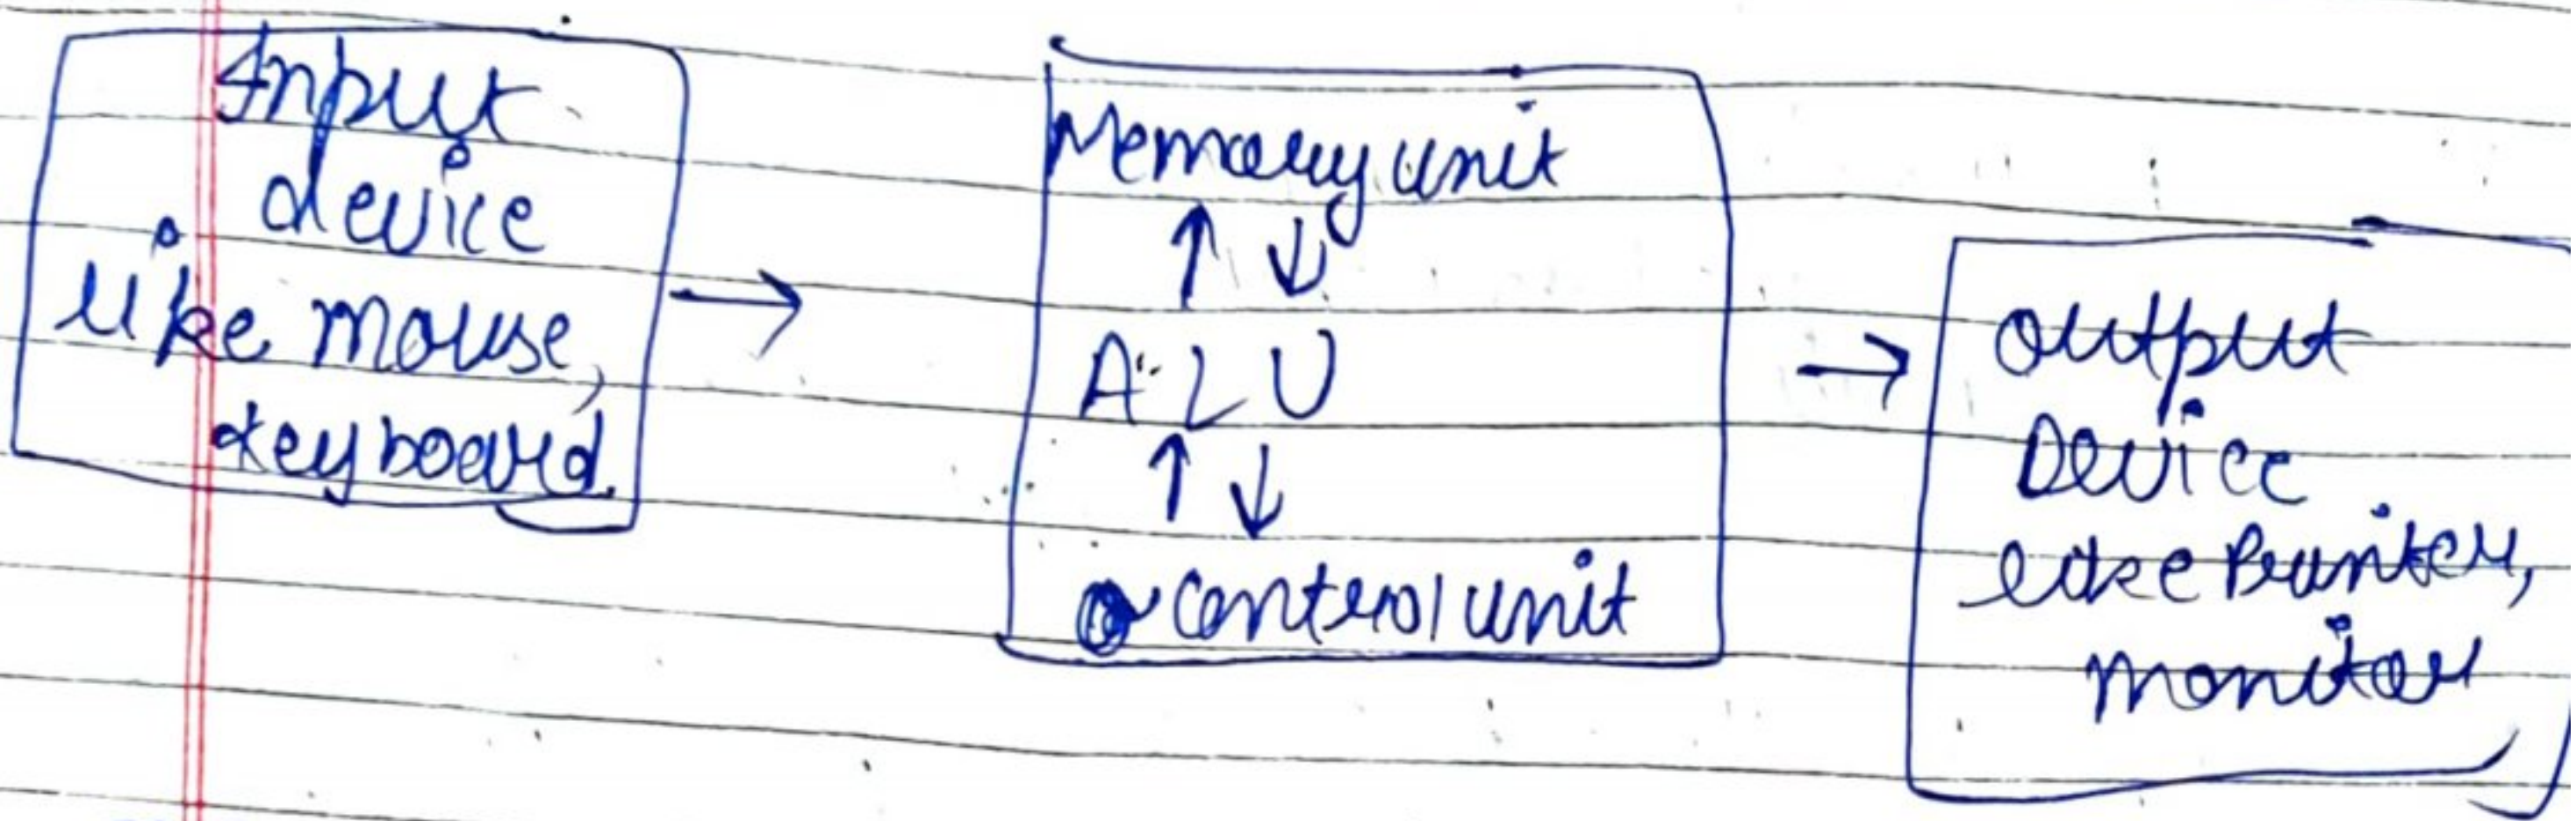 Input
device
like mouse,
keyboard.
Memory unit
↑ ↓
A L U
↑ ↓
control unit
output
Device
like Printer,
monitor